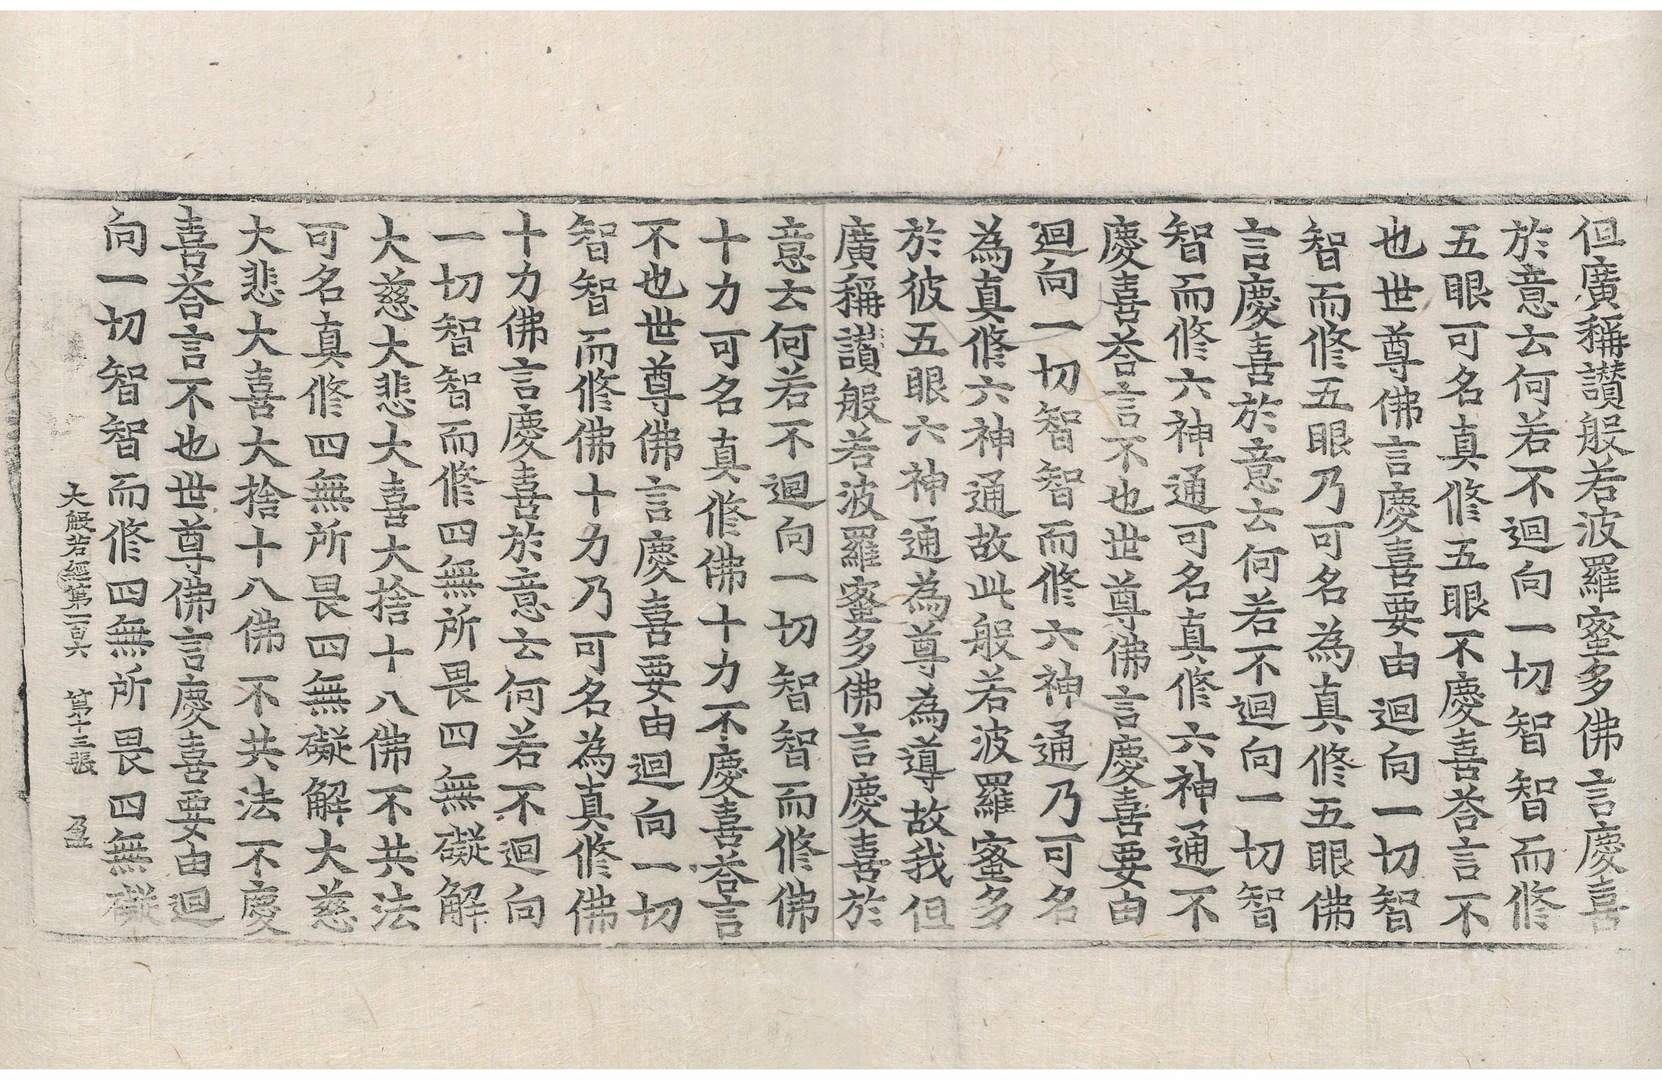 但廣稱讃般若波羅蜜多佛言慶喜
於意云何若不迴向一切智智而修
五眼可名真修五眼不慶喜荅言不
也世尊佛言慶喜要由迴向一切智
智而修五眼乃可名為真修五眼佛
言慶喜於意云何若不迴向一切智
智而修六神通可名真修六神通不
慶喜荅言不也世尊佛言慶喜要由
迴向一切智智而修六神通乃可名
為真修六神通故此般若波羅蜜多
於彼五眼六神通為尊為導故我但
廣稱讃般若波羅蜜多佛言慶喜於
意云何若不迴向一切智智而修佛
十力可名真修佛十力不慶喜荅言
不也世尊佛言慶喜要由迴向一切
智智而修佛十力乃可名為真修佛
十力佛言慶喜於意云何若不迴向
一切智智而修四無所畏四無礙解
大慈大悲大喜大捨十八佛不共法
可名真修四無所畏四無礙解大慈
大悲大喜大捨十八佛不共法不慶
喜荅言不也世尊佛言慶喜要由迴
向一切智智而修四無所畏四無礙
大般若經第一百六 第十三張 盈